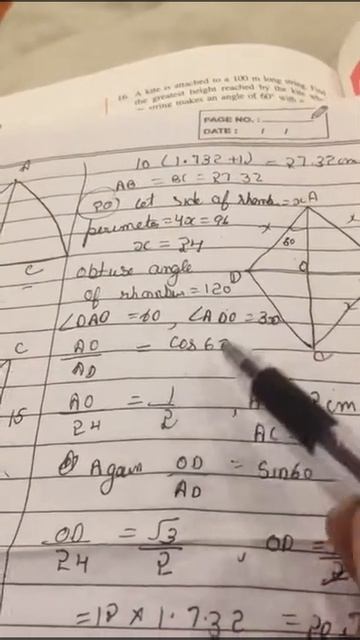 16. A kite is attached to a 100 m long string. Find
the greatest height reached by the kite
string makes an angle of 60° with
PAGE NO.:
DATE: / /
A
10 (1.732+1) = 27.32cm
AB = BC = 27.32
20) let side of rhomb = x
A
perimeter = 4x = 96
x
x
60
x = 24
C
obtuse angle
D
O
of rhombus = 120°
∠DAO = 60, ∠ADO = 30
x
C
AO/AD = cos 60
C
15
AO/24 = 1/2, cm
AC =
Again OD/AD = Sin60
OD/24 = √3/2, OD =
2
= 12 × 1.732 = 20.